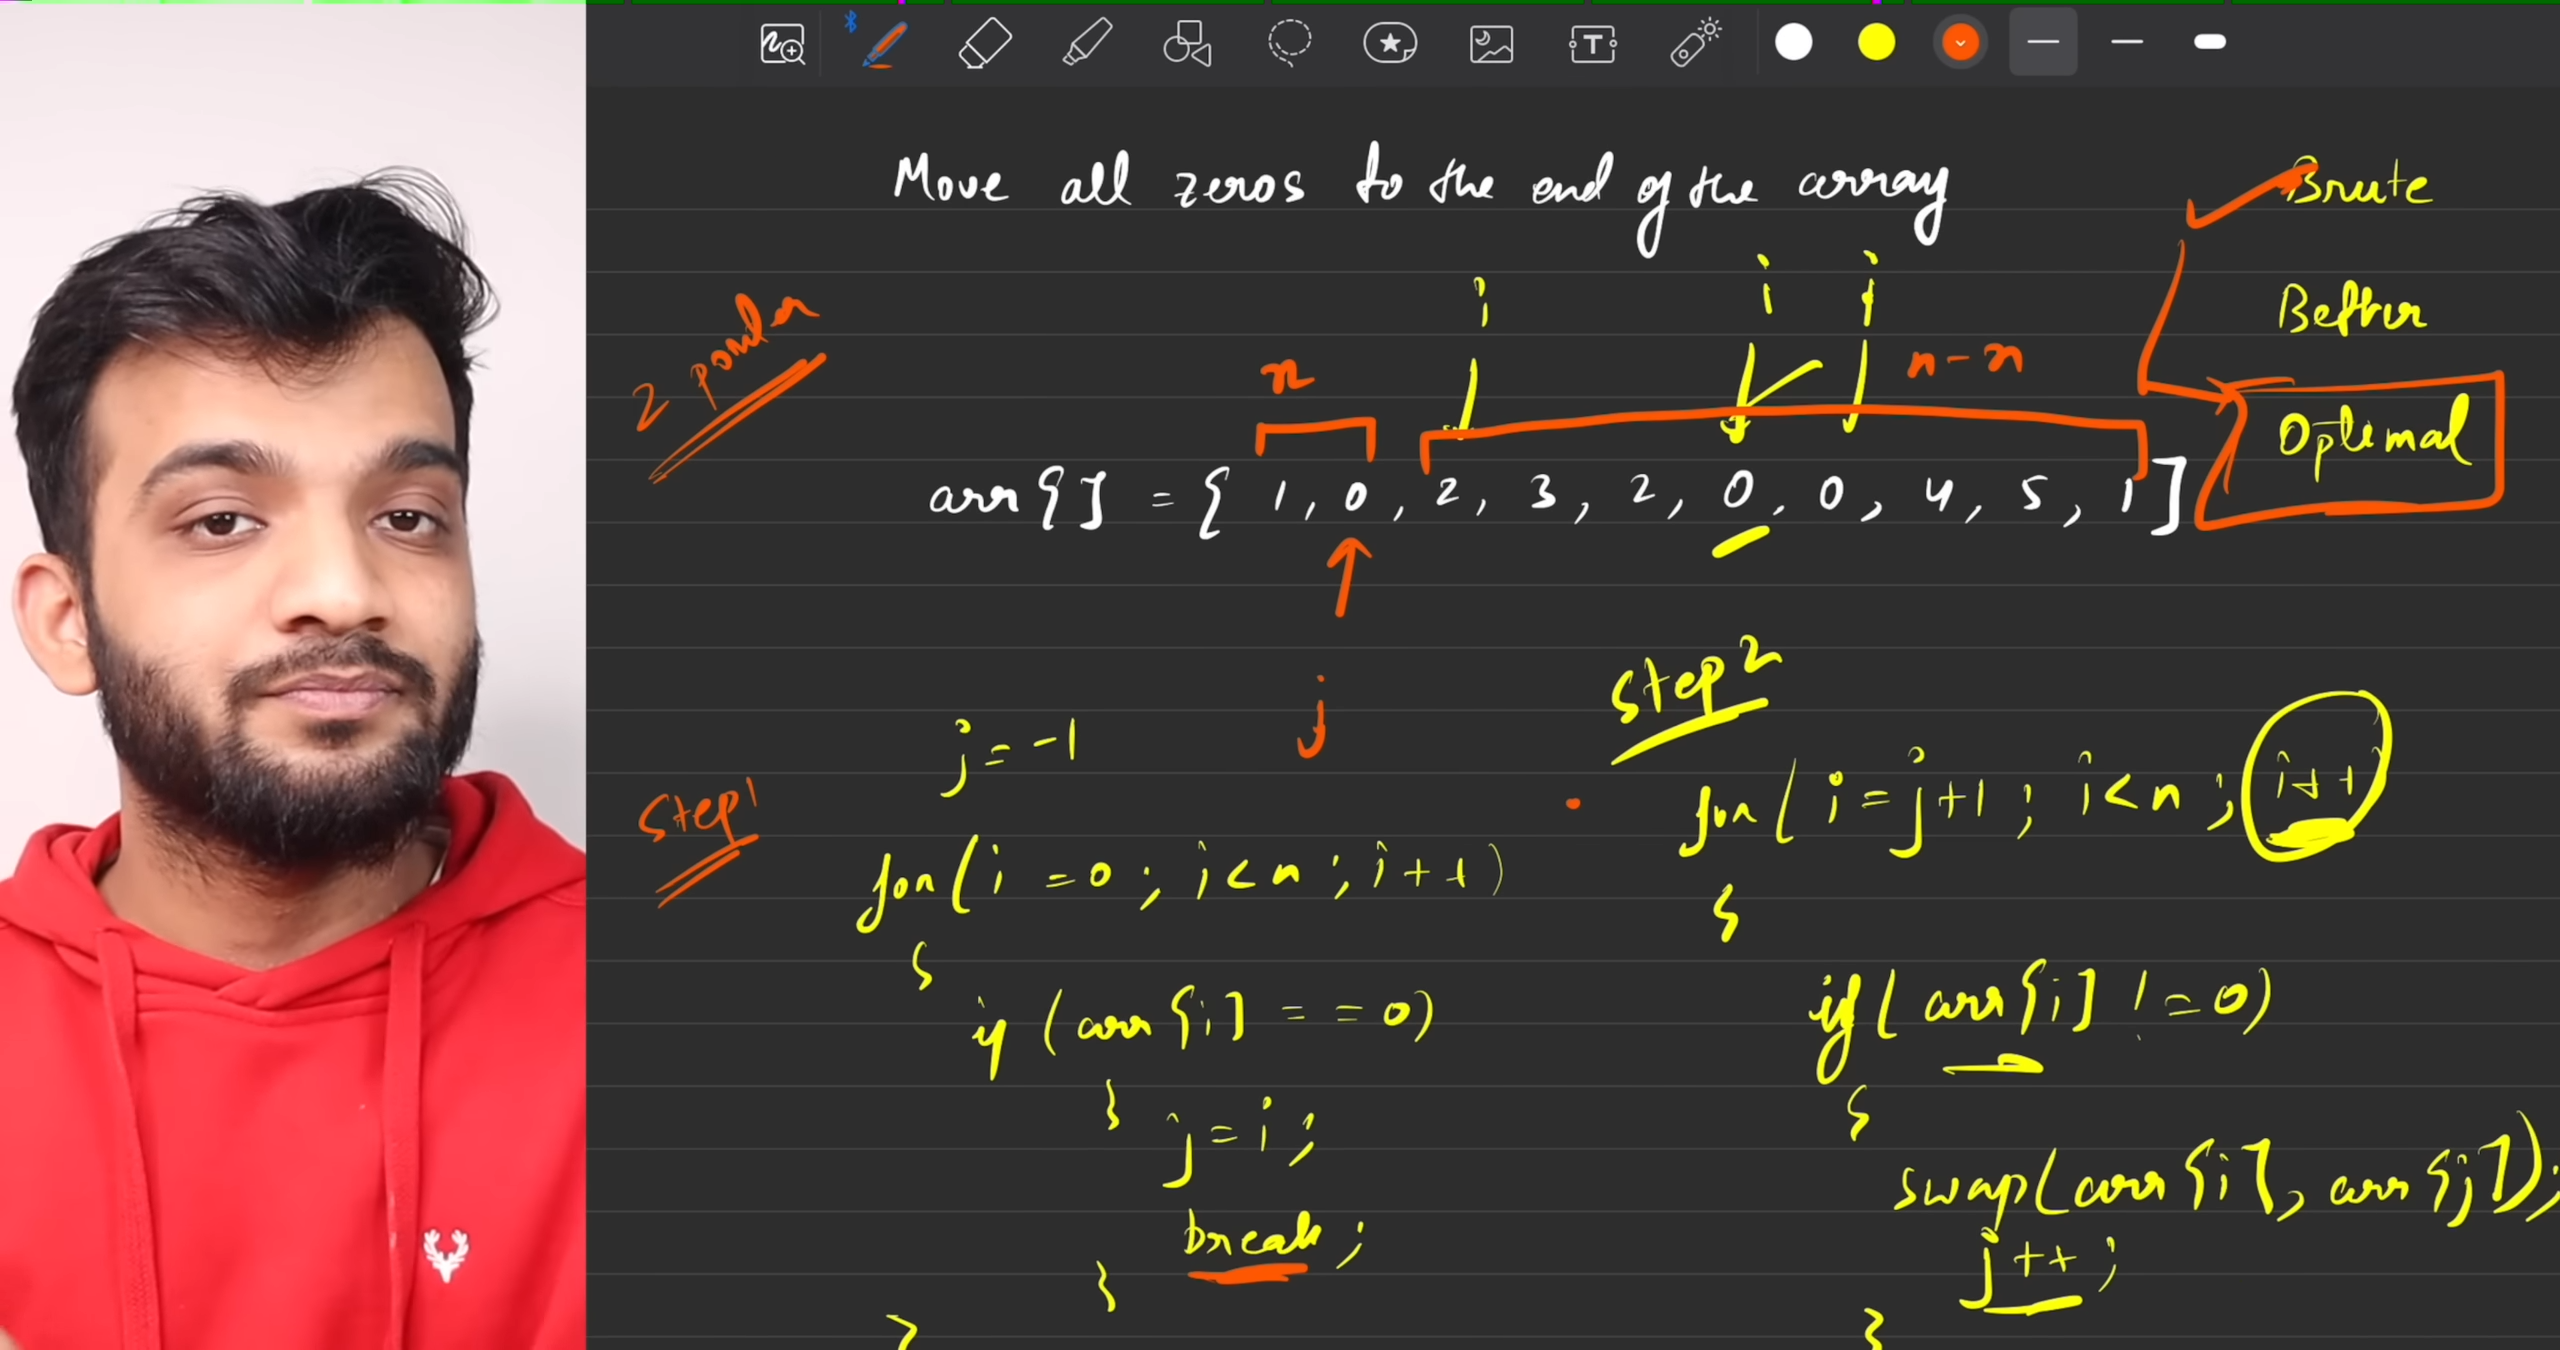 Move all zeros to the end of the array
Brute
Better
Optimal
2 pointer
i
i
i
x
n - x
arr[] = { 1, 0, 2, 3, 2, 0, 0, 4, 5, 1 ]
j
j = -1
Step1
for( i = 0 ; i < n ; i++ )
{
if (arr[i] == 0)
{
j = i ;
break ;
}
}
Step2
for( i = j+1 ; i < n ; i++ )
{
if( arr[i] != 0)
{
swap( arr[i], arr[j]);
j++ ;
}